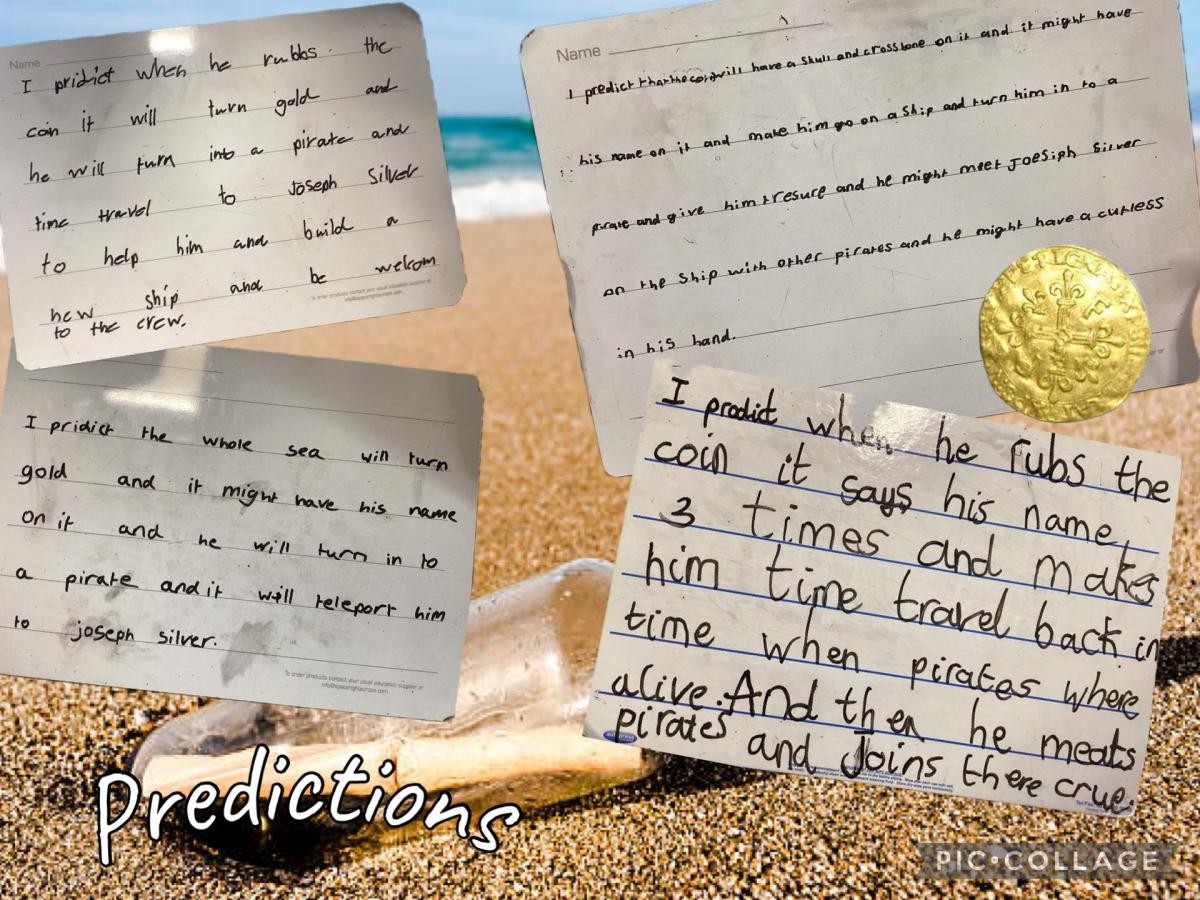 Name
I pridict when he rubbs the
coin it will turn gold and
he will turn into a pirate and
time travel to Joseph Silver
to help him and build a
new ship and be welcom
to the crew.
Name
I predict that the coin will have a skull and crossbone on it and it might have
his name on it and make him go on a ship and turn him in to a
pirate and give him tresure and he might meet Joesiph Silver
on the ship with other pirates and he might have a cutless
in his hand.
I pridict the whole sea will turn
gold and it might have his name
on it and he will turn in to
a pirate and it will teleport him
to joseph silver.
I prodict when he rubs the
coin it says his name,
3 times and makes
him time travel back in
time when pirates where
alive. And then he meats
pirates and Joins there crue.
Predictions
PIC•COLLAGE